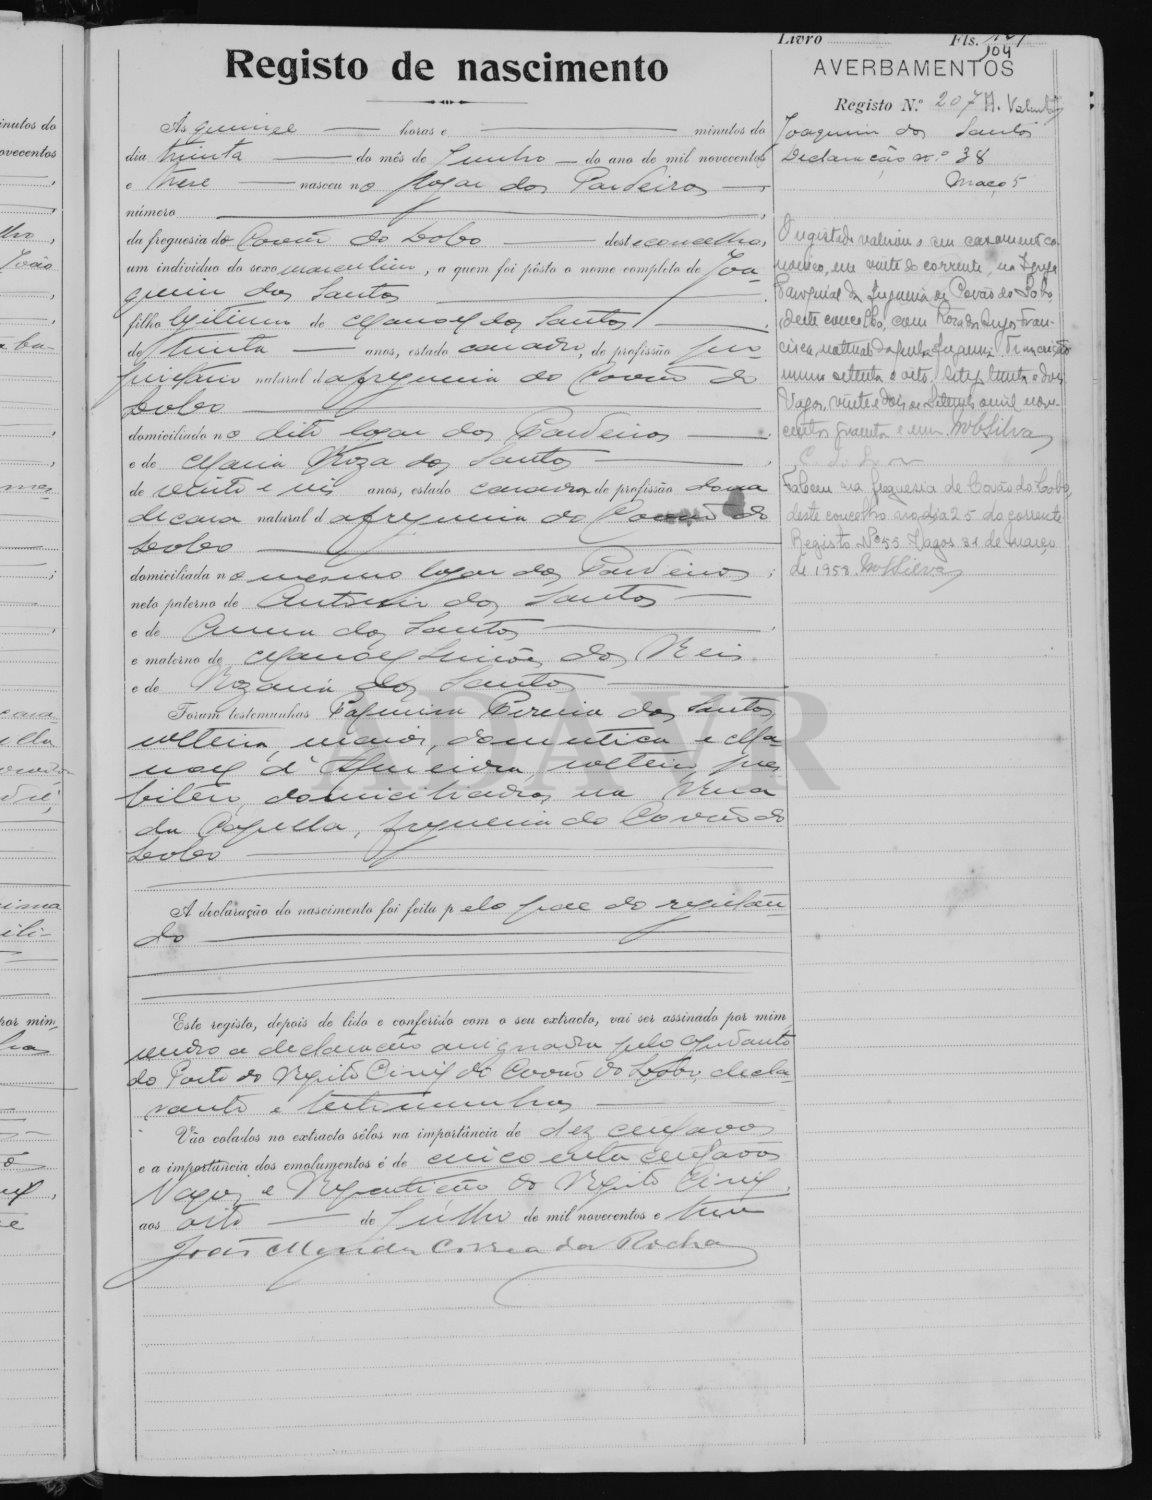 Livro Fls. 104
Registo de nascimento
AVERBAMENTOS
Registo N.º 207
Joaquim dos Santos
Declaração n.º 38
Maço 5
Às quinze horas e minutos do
dia trinta do mês de Junho do ano de mil novecentos
e treze nasceu no logar dos Pardeiros
número
da freguesia de Covão do Lobo deste concelho,
um indivíduo do sexo masculino, a quem foi pôsto o nome completo de Joa-
quim dos Santos
filho legitimo de Manoel dos Santos
de trinta anos, estado casado, de profissão
natural da freguesia do Covão do
Lobo
domiciliado no dito logar dos Pardeiros
e de Maria Roza dos Santos
de vinte e seis anos, estado casada de profissão dona
de casa natural da freguesia do Covão do
Lobo
domiciliada no mesmo logar dos Pardeiros;
neto paterno de Antonio dos Santos
e de Anna dos Santos
e materno de Manoel Simões dos Reis
e de Rozaria dos Santos
Foram testemunhas Pereira dos Santos,
solteira, maior, domestica e Ma-
noel d'Almeida, solteiro, pres-
bitero, domiciliados na
da Capella, freguesia do Covão do
Lobo
A declaração do nascimento foi feita pelo pae do registan-
do
Este registo, depois de lido e conferido com o seu extracto, vai ser assinado por mim,
sendo a declaração assignada pelo ajudante
do Posto do Registo Civil do Covão do Lobo, decla-
rante e testemunhas
Vão colados no extracto sêlos na importância de dez centavos
e a importância dos emolumentos é de cincoenta centavos
Vagos e Repartição do Registo Civil,
aos oito de Julho de mil novecentos e treze
João Correa da Rocha
O registado valeu casamento ca-
nonico, em vinte do corrente, na Igreja
Paroquial da freguesia de Covão do Lobo
deste concelho, com Rosa dos Anjos Fran-
cisca, natural da freguesia
numero setenta e oito.
Vagos, vinte e dois de Setembro de mil nove-
centos quarenta e um. MbSilva
Faleceu na freguesia de Covão do Lobo,
deste concelho no dia 25 do corrente
Registo Nº 53. Vagos 31 de março
de 1958. MbSilva
ADAVR